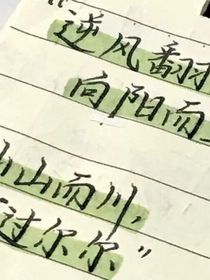 “逆风翻
向阳而
山而川
过尔尔”